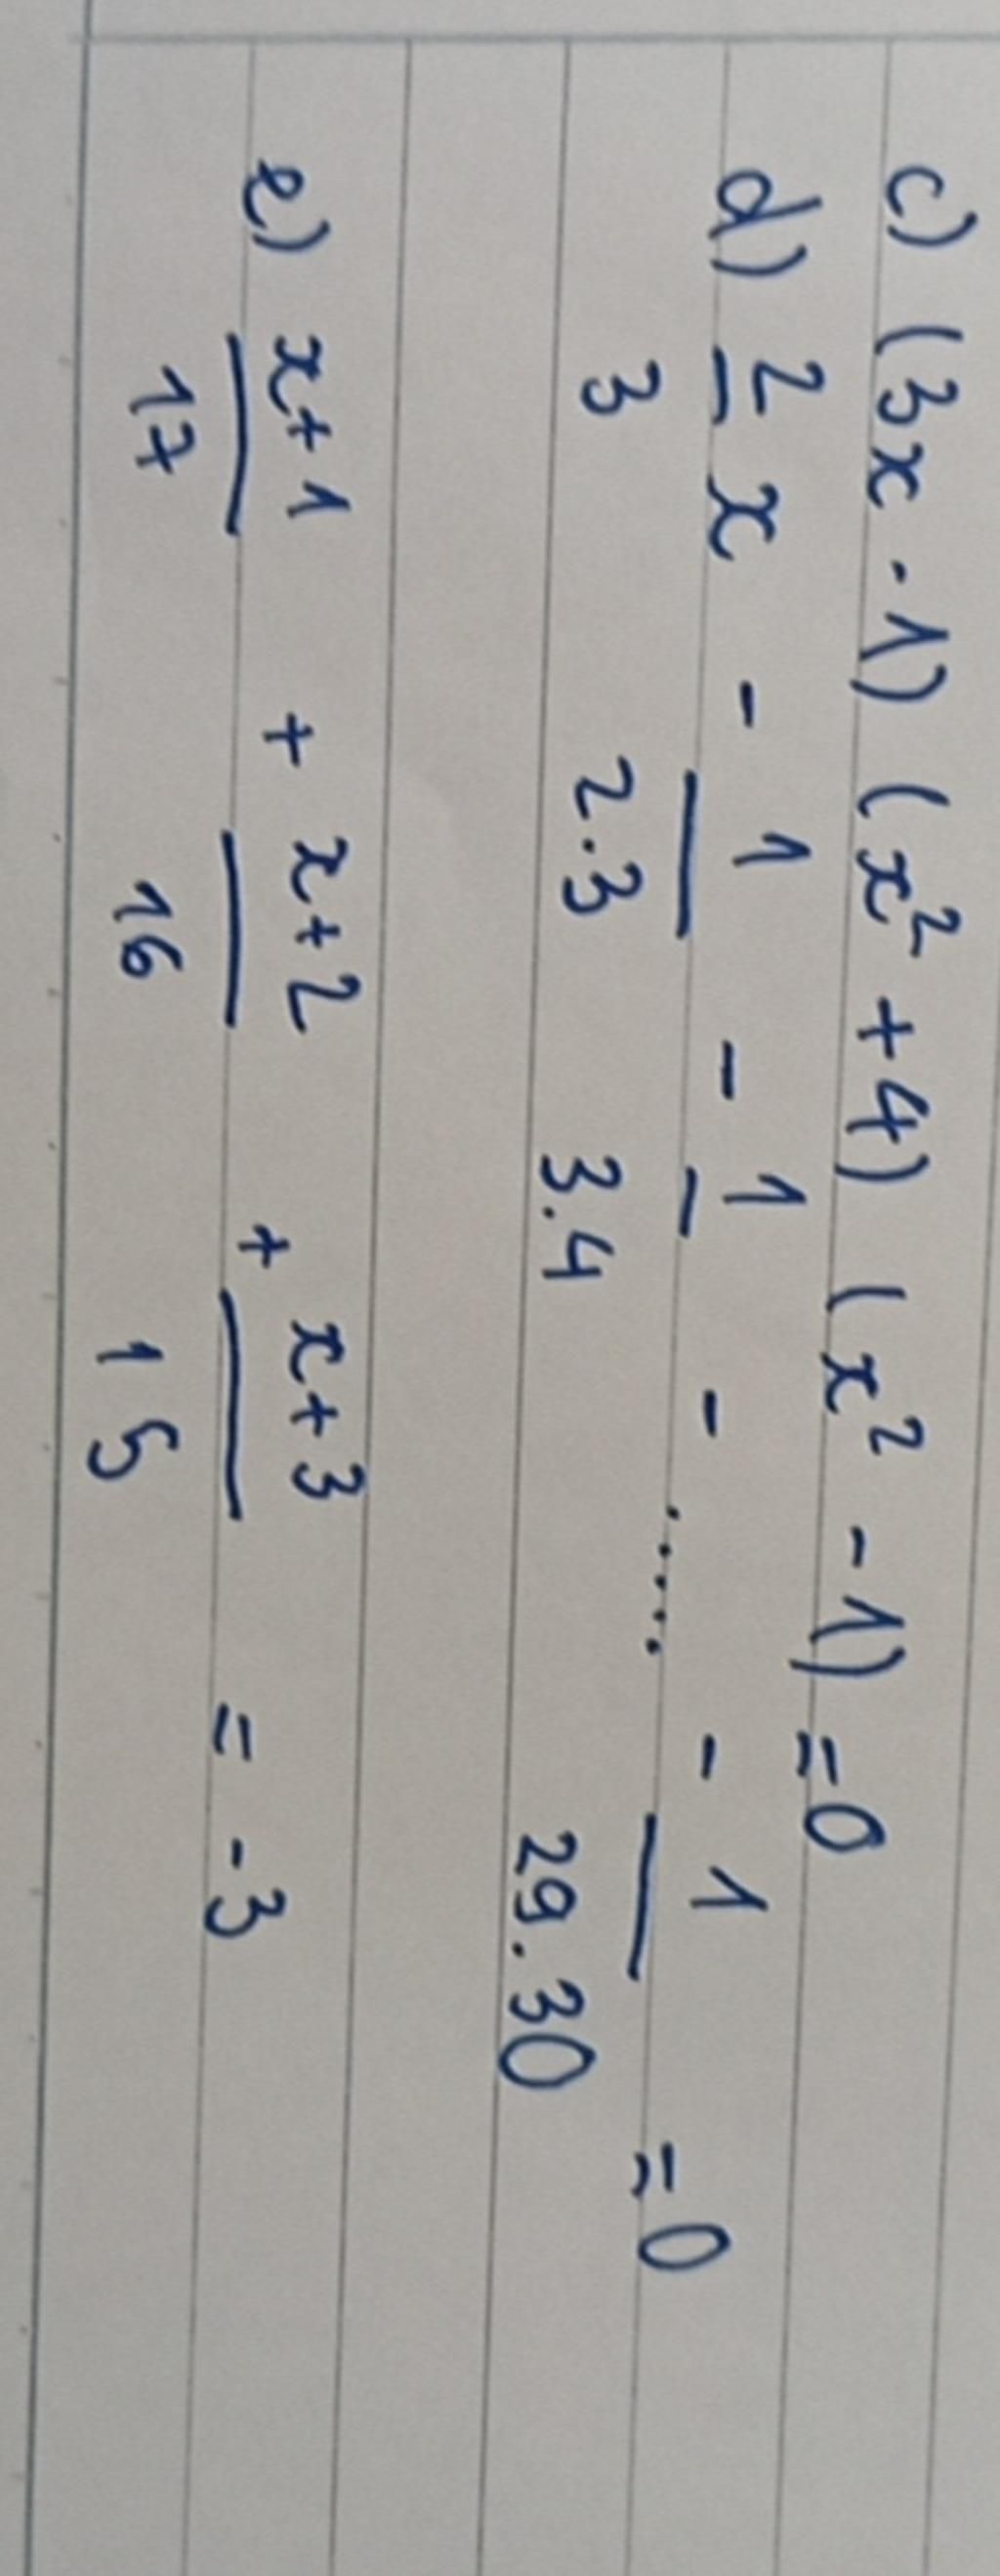 c) (3x - 1) (x² + 4) (x² - 1) = 0
d) 2/3 x - 1/2.3 - 1/3.4 - ..... - 1/29.30 = 0
e) x+1/17 + x+2/16 + x+3/15 = -3